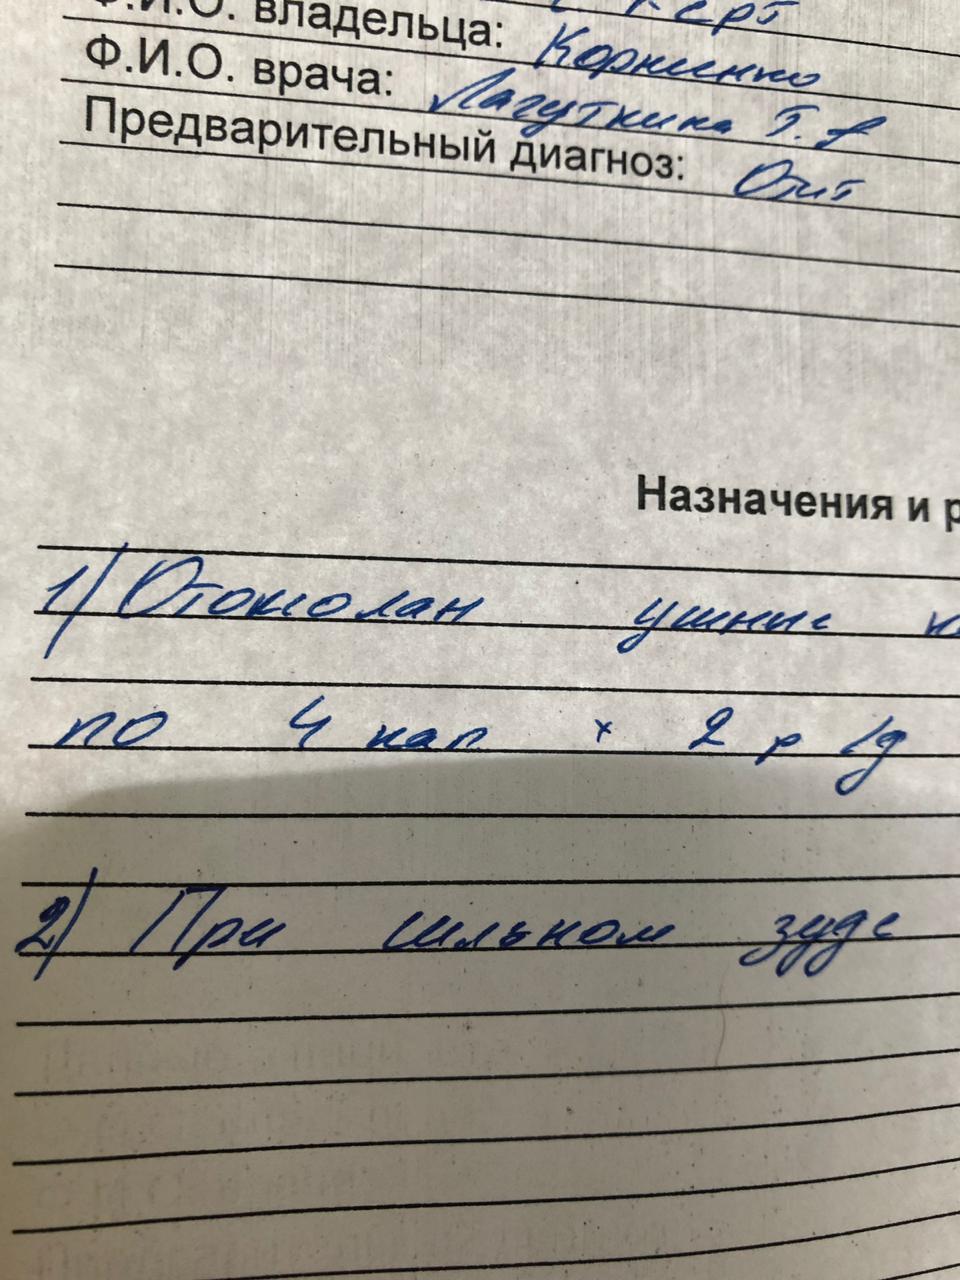 Ф.И.О. владельца: Корниенко
Ф.И.О. врача: Лагуткина Т.
Предварительный диагноз: Отит
Назначения и р
1) Отоксолан ушные
по 4 кап x 2 р/д
2) При сильном зуде